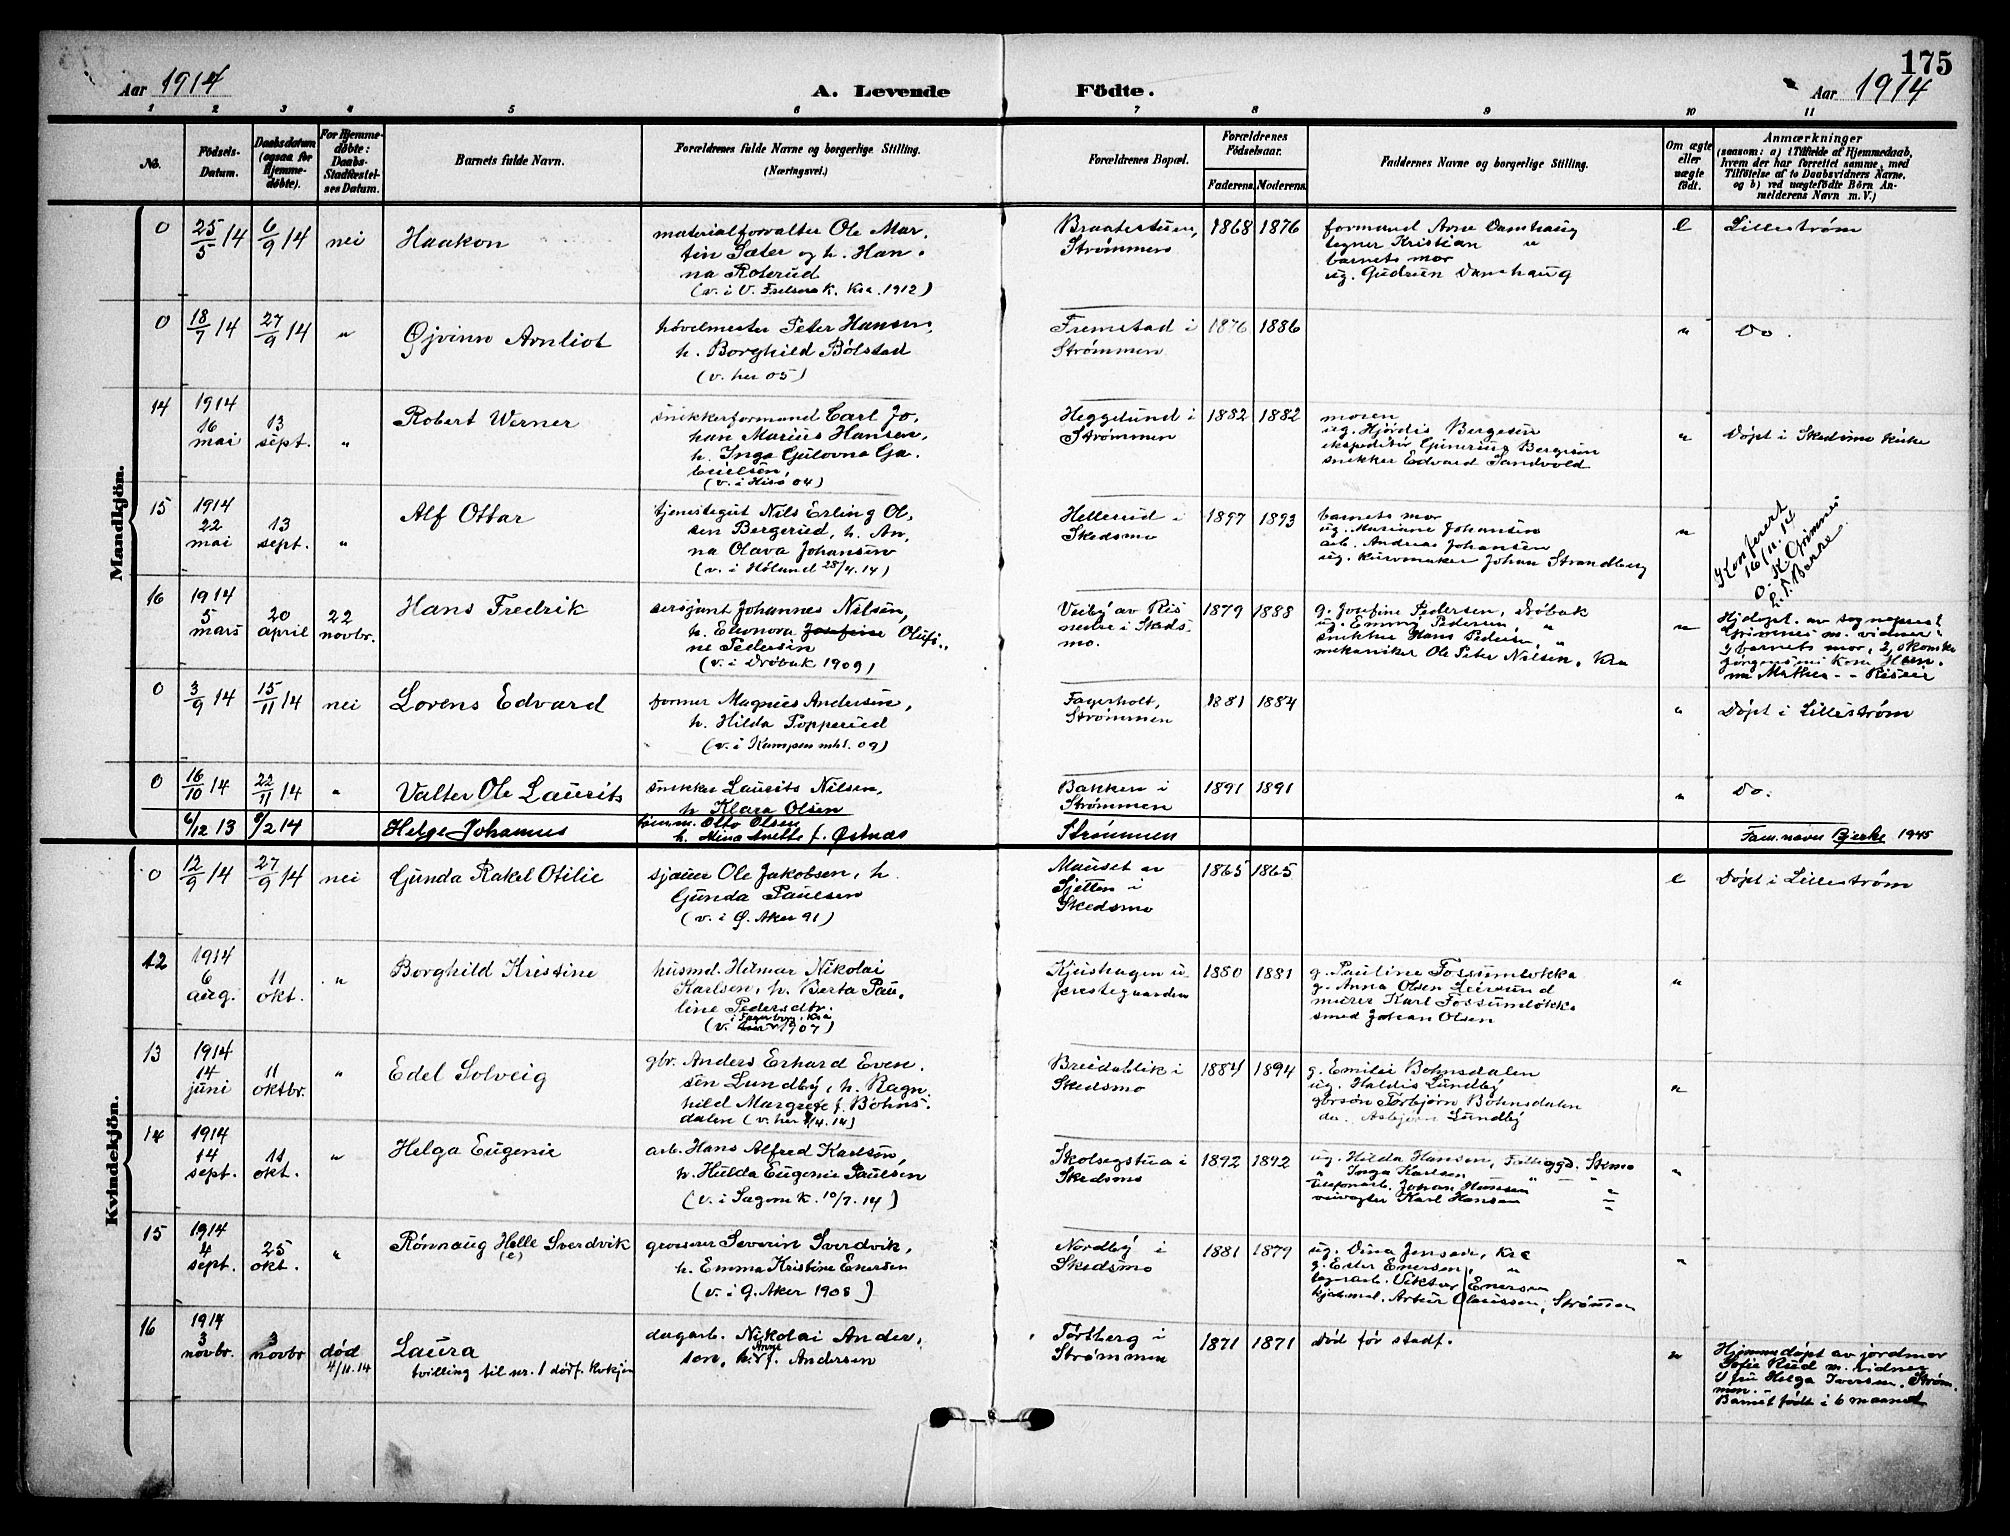 175
Aar 1914
A. Levende
Födte.
Aar 1914
1 2 3 4 5 6 7 8 9 10 11
No.
Födsels-
Datum.
Daabsdatum
(ogsaa for
Hjemme-
döbte).
For Hjemme-
döbte:
Daabs-
Stadfæstel-
ses Datum.
Barnets fulde Navn.
Forældrenes fulde Navne og borgerlige Stilling.
(Næringsvei.)
Forældrenes Bopæl.
Forældrenes
Födselsaar.
Faderens. Moderens.
Faddernes Navne og borgerlige Stilling.
Om ægte
eller
uægte
födt.
Anmærkninger
(saasom: a) i Tilfælde af Hjemmedaab,
hvem der har forrettet samme, med
Tilföielse af to Daabsvidners Navne,
og b) ved uægtefödte Börn An-
melderens Navn m. V.)
Mandkjön.
0 25/5 14 6/9 14 nei Haakon
materialforvalter Ole Mar-
tin Sæter og h. Han-
na Roterud
(v. i V. Frelsers k. Kra. 1912)
Braaterstuen,
Strømmen
1868 1876
formand Arne Damhaug
tegner Kristian "
barnets mor
ug. Gudrun Damhaug
e Lillestrøm
0 18/7 14 27/9 14 " Øivinn Arnliot
høvelmester Peter Hansen,
h. Borghild Bölstad
(v. her 05)
Fremstad i
Strømmen
1876 1886
" Do.
14 1914
16
mai
13
sept. " Robert Werner
snikkerformand Carl Jo-
han Marius Hansen,
h. Inga Gulovna Ga-
brielsen,
(v. i Hisö 04)
Heggelund i
Strømmen
1882 1882
moren
ug. Hjördis Bergesen
ekspeditör Gunerius Bergesen
snikker Edvard Sandvold
" Döpt i Skedsmo kirke
15 1914
22
mai
13
sept. " Alf Ottar
tjenestegut Nils Erling Ol-
sen Bergerud, h. An-
na Olava Johansen
(v. i Höland 28/4.14)
Hellerud i
Skedsmo
1897 1893
barnets mor
ug. Mariane Johansen
arb. Andreas Johansen
ug. kurvmaker Johan Strandberg
"
Konferert
16/11.14
O. K. Grimnes
16 1914
5
mars
20
april
22
novbr. Hans Fredrik
sersjant Johannes Nilsen,
h. Eleonora Josefine Olufi-
ne Pedersen
(v. i Dröbak 1909)
Veiby av Ris
nedre i Skeds-
mo.
1879 1888
g. Josefine Pedersen, Dröbak
ug. Emmy Pedersen, "
snikker Hans Pedersen, "
mekaniker Ole Peter Nilsen, Kra
"
Hjdöpt. av sogneprest
Grimnes m. vidner:
1 barnets mor, 2,
0 3/9 14 15/11 14 nei Lorens Edvard
former Magnus Andersen,
h. Hilda Topperud
(v. i Kampen mht. 09)
Fagerholt,
Strømmen
1881 1884
" Döpt i Lilleström
0 16/10 14 22/11 14 " Valter Ole Laurits
snikker Laurits Nilsen,
h. Klara Olsen
Bakken i
Strømmen
1891 1891
" Do.
6/12 13 8/2 14 Helge Johannes
Otto Olsen
h. Mina Anette f. Østnæs
Strømmen
Fam.navn Bjerke 1945
Kvindekjön.
0 12/9 14 27/9 14 nei Gunda Rakel Otilie
sjauer Ole Jakobsen, h.
Gunda Paulsen
(v. i Ø. Aker 91)
Mauset av
Sjetten i
Skedsmo
1865 1865
e Döpt i Lilleström
12 1914
6
aug.
11
okt. " Borghild Kristine
husmd. Hilmar Nikolai
Karlsen, h. Berta Pau-
line Pedersdtr.
i Fagerborg, Kra
(v. her 1907)
Kjushagen u.
prestegaarden
1880 1881
g. Pauline Fossumløkka
g. Anna Olsen Leirsund
murer Karl Fossumløkka
smed Johan Olsen
"
13 1914
14
juni
11
oktbr. " Edel Solveig
gbr. Anders Erhard Even-
sen Lundby, h. Ragn-
hild Margrete f. Böhns-
dalen (v. her 9/4.14)
Breidablik i
Skedsmo
1884 1894
g. Emilie Böhnsdalen
ug. Haldis Lundby
gbrsøn Torbjørn Böhnsdalen
do. Asbjørn Lundby
"
14 1914
14
sept.
11
okt. " Helga Eugenie
arb. Hans Alfred Karlsen,
h. Hulda Eugenie Paulsen
(v. i Sagene k. 10/7.14)
Skolsegstua i
Skedsmo
1892 1892
ug. Hilda Hansen,
" Inga Karlsen
telefonarb. Johan Hansen
veivogter Karl Hansen
"
15 1914
4
sept.
25
okt. " Rönnaug Helle Sverdvik
(e)
grosserer Severin Sverdvik,
h. Emma Kristine Enersen
(v. i Ø. Aker 1908)
Nordby i
Skedsmo
1881 1879
ug. Dina Jensen, Kra
g. Ester Enersen, "
lagerarb. Viktor Enersen
Artur Claussen, Strömmen
"
16 1914
3
novbr.
3
novbr
död
4/11.14
Laura
tvilling til nr. 1 dödf. kvkjön
dagarb. Nikolai Ander-
sen, h. Anne f. Andersen
Torsberg i
Strømmen
1871 1871
Död för stadf.
"
Hjemmedöpt av jordmor
Sofie Ruud m. vidner
1 fru Helga Iversen, Ström-
men.
Barnet födt i 6 maaned